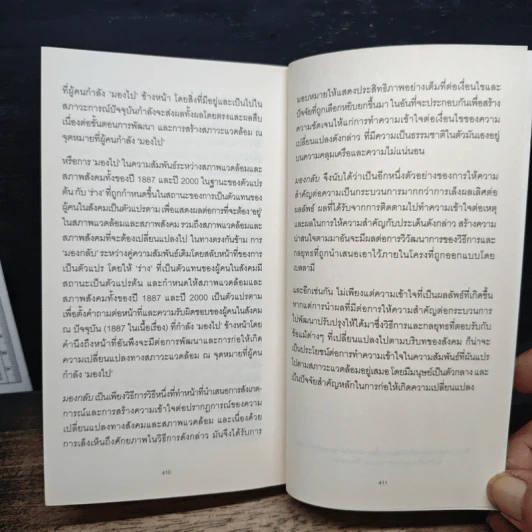 ที่ผู้คนกำลัง 'มองไป' ข้างหน้า โดยสิ่งที่มีอยู่และเป็นไปใน
สภาวะการณ์ปัจจุบันกำลังจะส่งผลทั้งผลโดยตรงและผลสืบ
เนื่องต่อขั้นตอนการพัฒนา และการสร้างสภาวะแวดล้อม ณ
จุดหมายที่ผู้คนกำลัง 'มองไป'
หรือการ 'มองไป' ในความสัมพันธ์ระหว่างสภาพแวดล้อมและ
สภาพสังคมทั้งของปี 1887 และปี 2000 ในฐานะของตัวแปร
ต้น กับ 'ร่าง' ที่ถูกกำหนดขึ้นในสถานะของการเป็นตัวแทนของ
ผู้คนในสังคมเป็นตัวแปรตาม เพื่อแสดงผลต่อการที่จะต้อง 'อยู่'
ในสภาพแวดล้อมและสภาพสังคม รวมถึงสภาพแวดล้อมและ
สภาพสังคมที่จะต้องเปลี่ยนแปลงไป ในทางตรงกันข้าม การ
'มองกลับ' ระหว่างคู่ความสัมพันธ์เดิมโดยสลับหน้าที่ของการ
เป็นตัวแปร โดยให้ 'ร่าง' ที่เป็นตัวแทนของผู้คนในสังคมมี
สถานะเป็นตัวแปรต้น และกำหนดให้สภาพแวดล้อมและ
สภาพสังคมทั้งของปี 1887 และปี 2000 เป็นตัวแปรตาม
เพื่อตั้งคำถามต่อหน้าที่และความรับผิดชอบของผู้คนในสังคม
ณ ปัจจุบัน (1887 ในเนื้อเรื่อง) ที่กำลัง 'มอง' ข้างหน้าโดย
คำนึงถึงหน้าที่อันพึงจะมีต่อการพัฒนาและการก่อให้เกิด
ความเปลี่ยนแปลงทางสภาวะแวดล้อม ณ จุดหมายที่ผู้คน
กำลัง 'มองไป'
มองกลับ เป็นเพียงวิธีการวิธีหนึ่งที่ทำหน้าที่นำเสนอการสังเกต-
การณ์และการสร้างความเข้าใจต่อปรากฏการณ์ของความ
เปลี่ยนแปลงทางสังคมและสภาพแวดล้อม และเนื่องด้วย
การเล็งเห็นถึงศักยภาพในวิธีการดังกล่าว มันจึงได้รับการ
410
มอบหมายให้แสดงประสิทธิภาพอย่างเต็มที่ต่อเงื่อนไขและ
ปัจจัยที่ถูกเลือกหยิบยกขึ้นมา ในอันที่จะประกอบกันเพื่อสร้าง
ความชัดเจนให้แก่การทำความเข้าใจต่อเงื่อนไขของความ
เปลี่ยนแปลงดังกล่าว ที่มีความเป็นธรรมชาติในตัวมันเองอยู่
บนความคลุมเครือและความไม่แน่นอน
มองกลับ จึงนับได้ว่าเป็นอีกหนึ่งตัวอย่างของการให้ความ
สำคัญต่อความเป็นกระบวนการมากกว่าการเล็งผลเลิศต่อ
ผลลัพธ์ ผลที่ได้รับจากการติดตามไปทำความเข้าใจต่อเหตุ
และผลในการให้ความสำคัญกับประเด็นดังกล่าว สร้างความ
น่าสนใจตามมาอันจะมีผลต่อการวิวัฒนาการของวิธีการและ
กลยุทธที่ถูกนำเสนอเอาไว้ภายในโครงที่ถูกออกแบบโดย
เบลลามี
และอีกเช่นกัน ไม่เพียงแต่ความเข้าใจที่เป็นผลลัพธ์ที่เกิดขึ้น
หากแต่การนำผลที่มีต่อการให้ความสำคัญต่อกระบวนการ
ไปพัฒนาปรับปรุงให้ได้มาซึ่งวิธีการและกลยุทธที่ตอบรับกับ
ข้อแม้ต่างๆ ที่เปลี่ยนแปลงไปตามบริบทของสังคม ก็น่าจะ
เป็นประโยชน์ต่อการทำความเข้าใจในความสัมพันธ์ที่ผันแปร
ไปตามสภาวะแวดล้อมอยู่เสมอ โดยมีมนุษย์เป็นตัวกลาง และ
เป็นปัจจัยสำคัญหลักในการก่อให้เกิดความเปลี่ยนแปลง
411